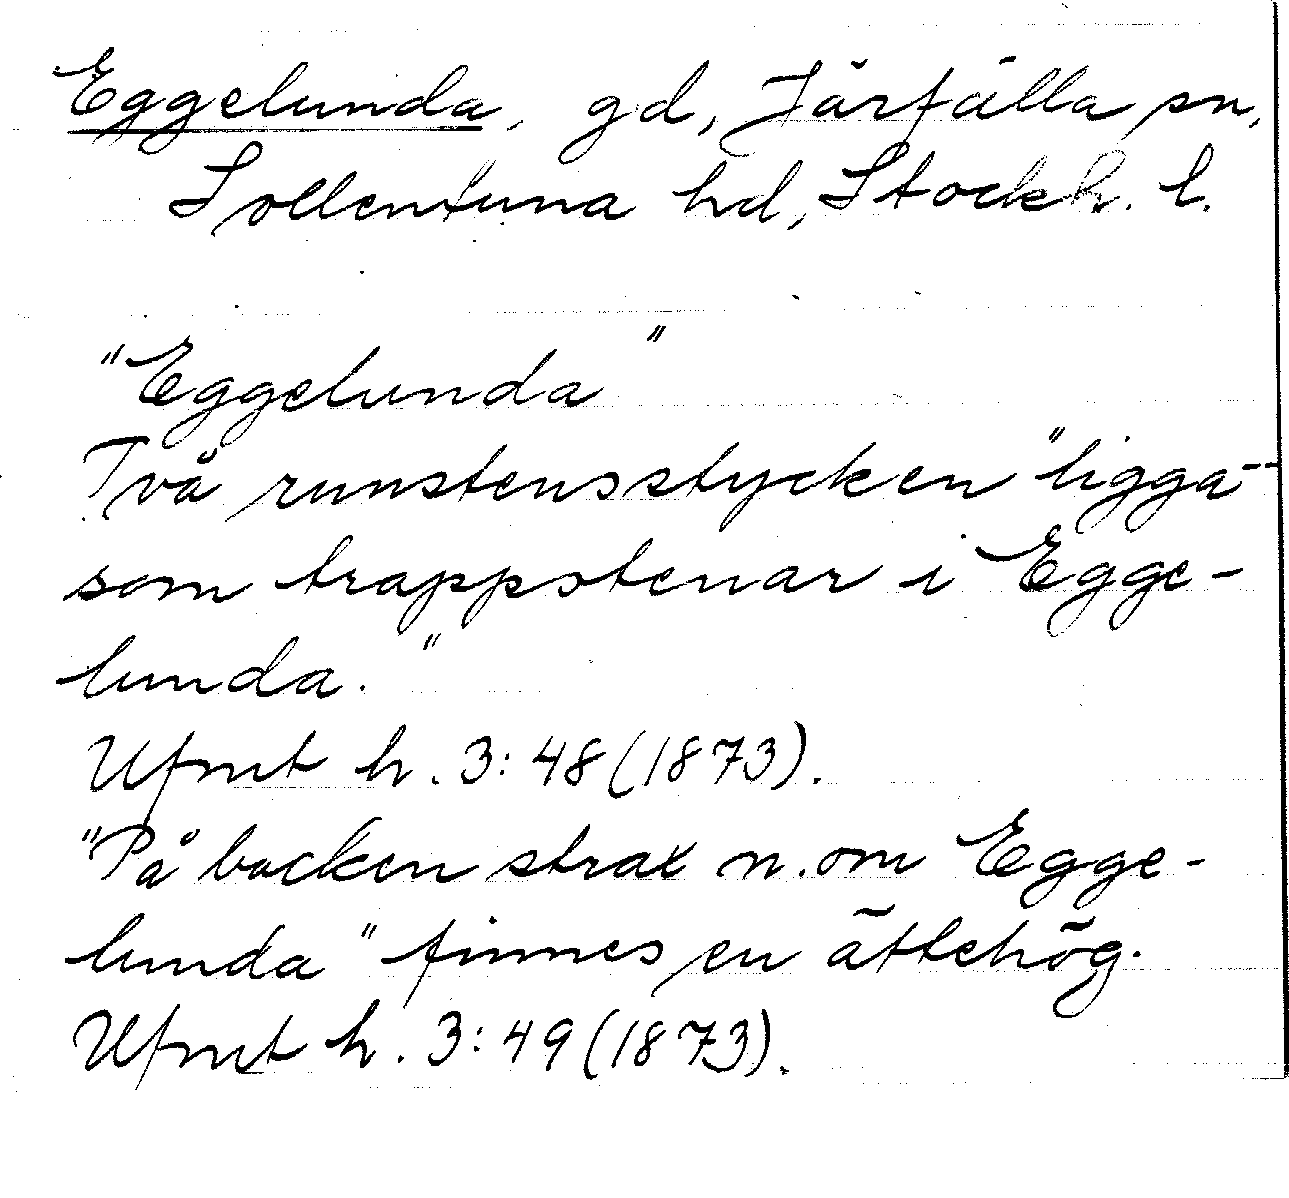 Eggelunda, gd, Järfälla sn,
Sollentuna hd, Stockh. l.
"Eggelunda"
Två runstensstycken "ligga --
som trappstenar i Egge-
lunda."
Ufmt h. 3:48 (1873).
"På backen strax n. om Egge-
lunda" finnes en ättehög.
Ufmt h. 3:49 (1873).